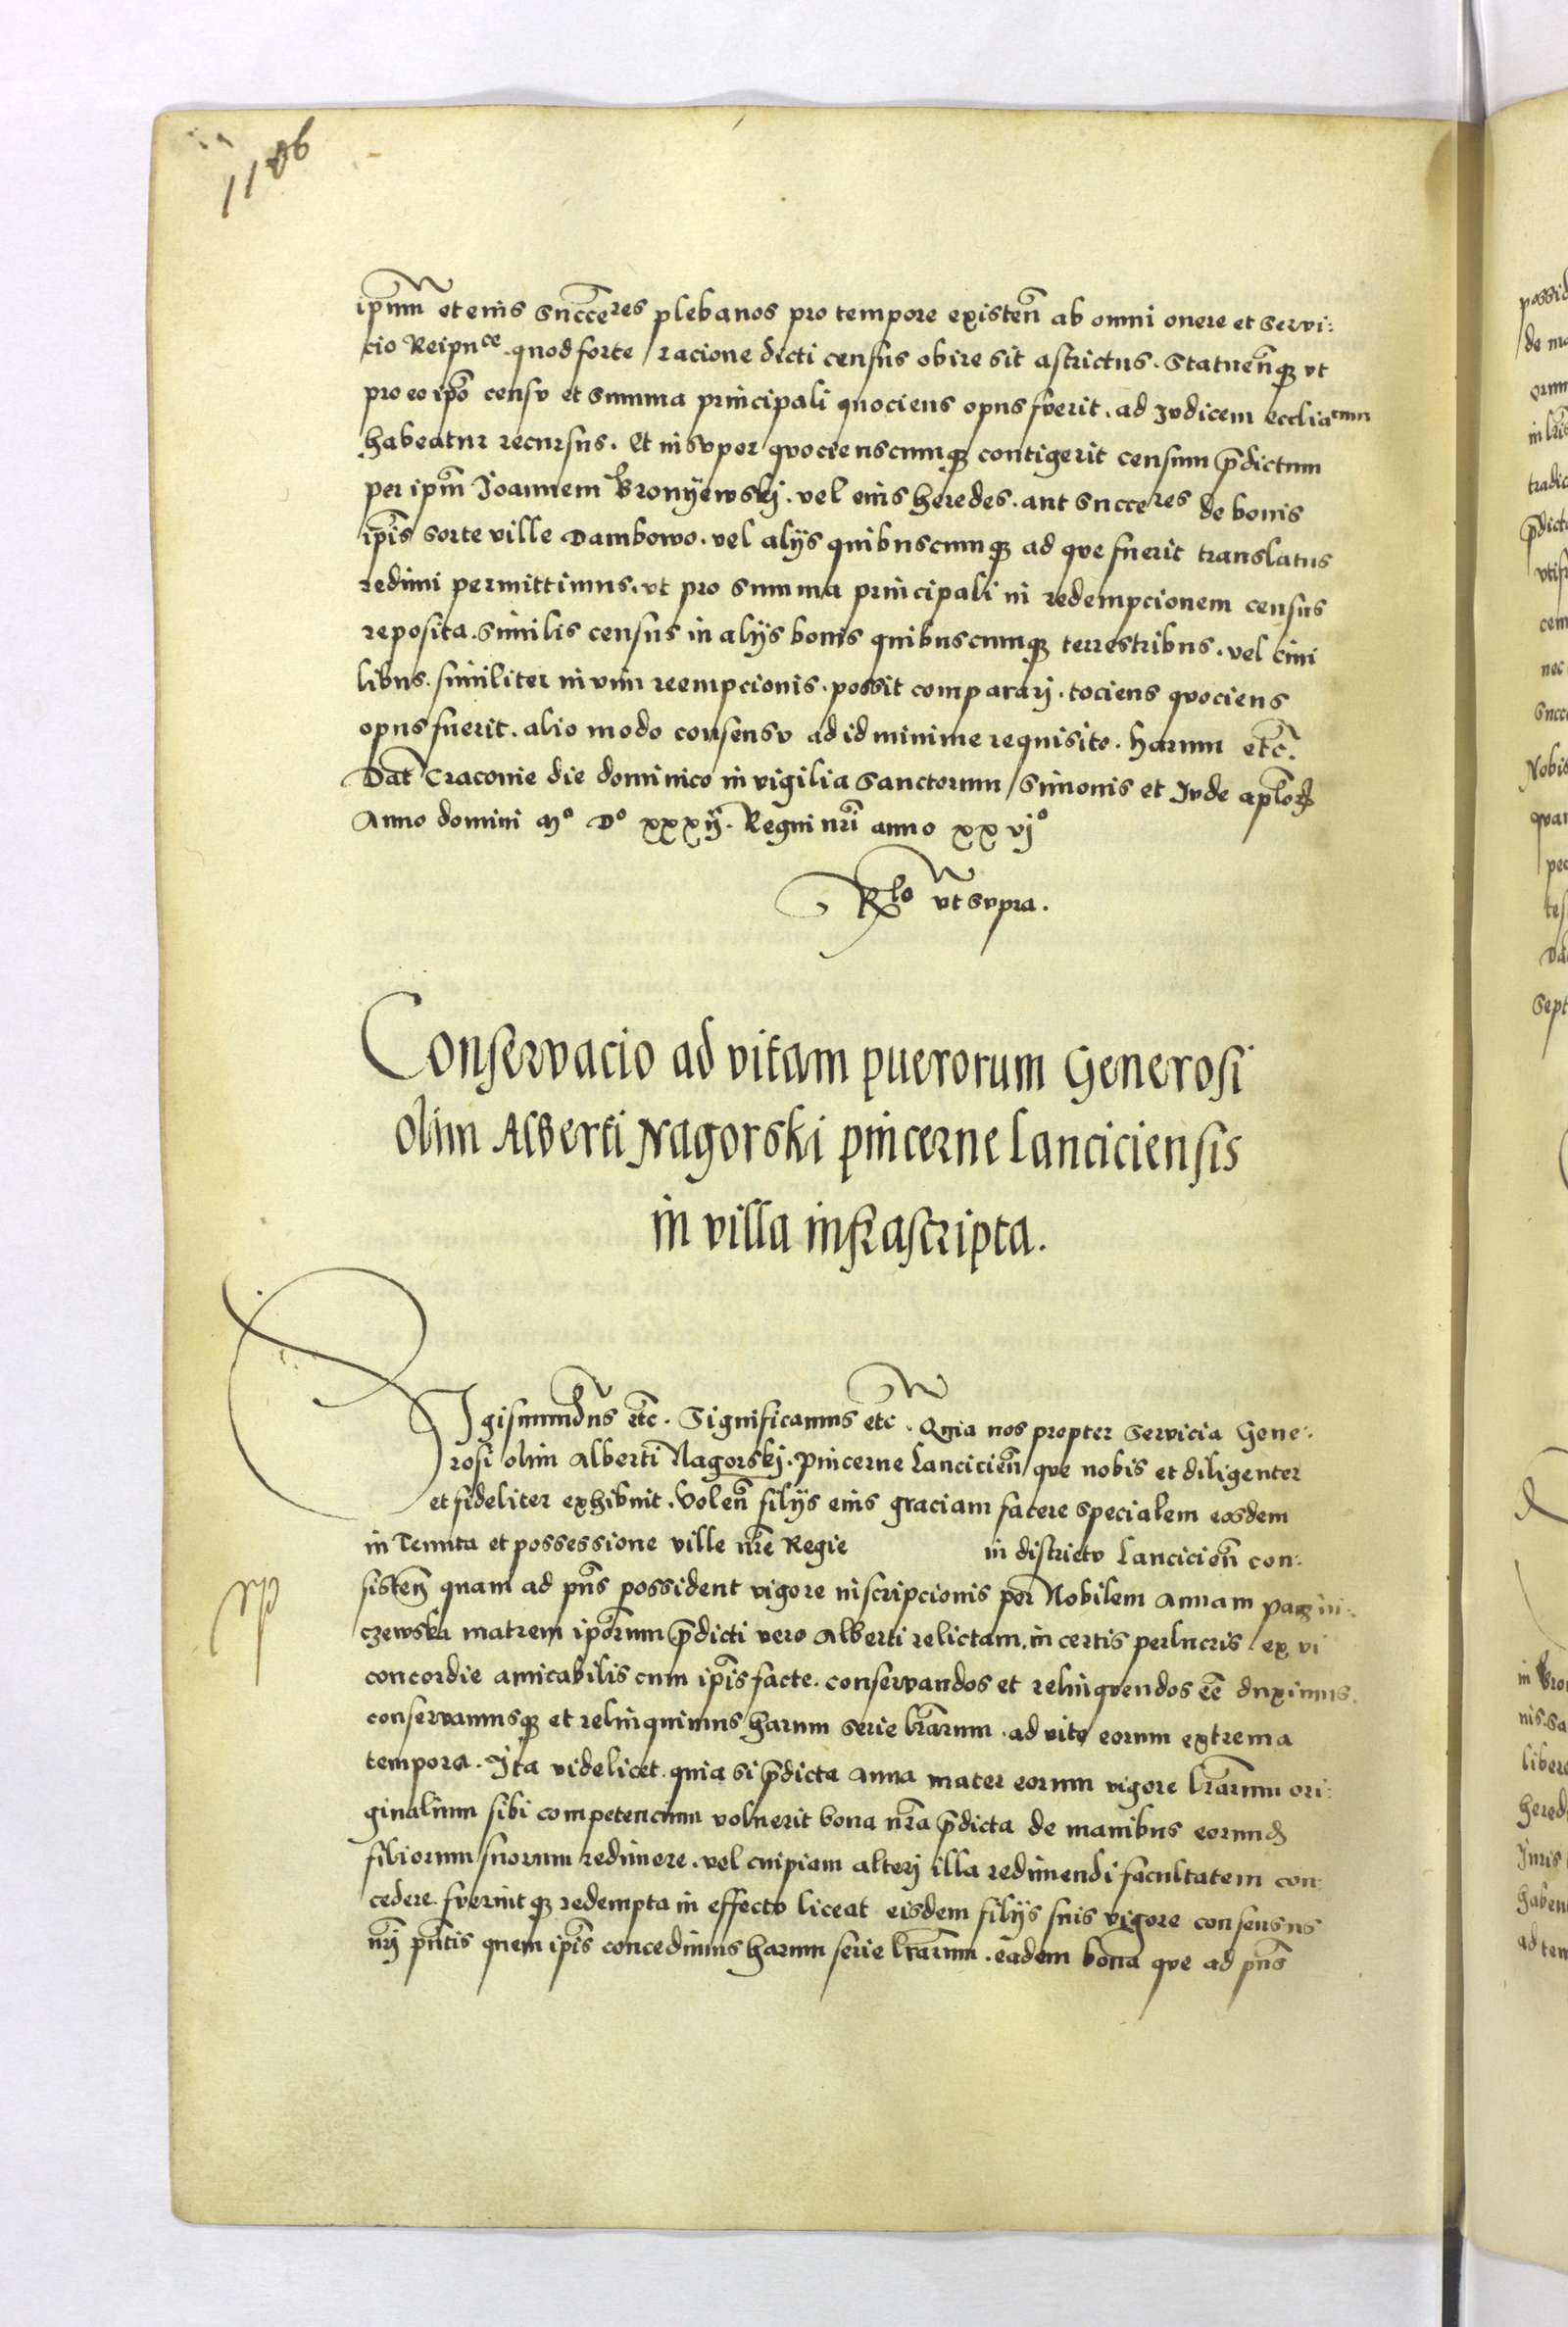 1106
ipsum et eius succeres plebanos pro tempore existen ab omni onere et servi:
cio Reipnce. quod forte racione dicti census obire sit astrictus. Statuenq ut
pro eo ipo censu et summa principali quociens opus fuerit. ad Judicem eccliacum
habeatur recursus. Et insuper quocienscumq contigerit censum pdictum
per ipm Joannem Bronyewskj. vel eius heredes. aut succeres de bonis
ipis sorte ville Dambowo. vel alijs quibuscumq ad que fuerit translatus
redimi permittimus. ut pro summa principali in redempcionem census
reposita. similis census in alijs bonis quibuscumq terrestribus. vel civi
libus. similiter in vim reempcionis. possit compararj. tociens quociens
opus fuerit. alio modo consensu ad id minime requisito. harum etc.
Dat Cracovie die dominico in vigilia sanctorum Simonis et Jude aplor
Anno domini Mo Do xxxij. Regni nri anno xxvjo
Rlo ut supra.
Conservacio ad vitam puerorum Generosi
olim Alberti Nagorski pincerne Lanciciensis
in villa infrascripta.
Sigismundus etc. Significamus etc. Quia nos propter servicia Gene:
rosi olim Alberti Nagorskj. pincerne Lancicien que nobis et diligenter
et fideliter exhibuit. Volen filijs eius graciam facere specialem eosdem
in Tenuta et possessione ville nre Regie in districtu Lancicien con:
sisten quam ad pns possident vigore inscripcionis per Nobilem Annam
czewska matrem iporum pdicti vero Alberti relictam. in certis perlucris ex vi
concordie amicabilis cum ipis facte. conservandos et relinquendos ee duximus.
conservamusq et relinquimus harum serie lrarum. ad vite eorum extrema
tempora. Ita videlicet. quia si pdicta Anna mater eorum vigore lrarum ori:
ginalium sibi competencium voluerit bona nra pdicta de manibus eorund
filiorum suorum redimere. vel cuipiam alterj illa redimendi facultatem con:
cedere. fuerintq redempta in effectu liceat eisdem filijs suis vigore consensus
nrj pntis quem ipis concedimus harum serie lrarum. eadem bona que ad pns